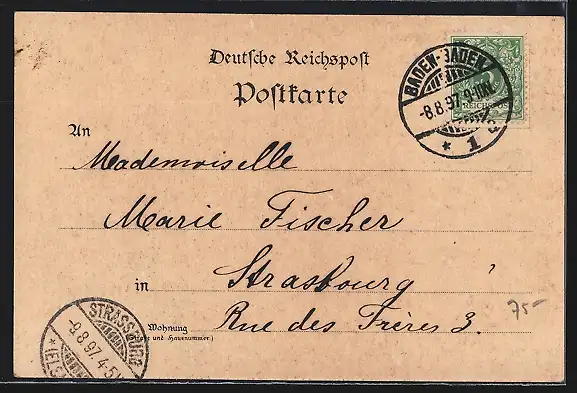 Deutsche Reichspost
Postkarte
BADEN-BADEN
-8.8.97.9-10N
* 1 c
REICHSPOST
An
Mademoiselle
Marie Fischer
in Strasbourg
Wohnung
(Straße und Hausnummer.)
Rue des Frères 3.
75-
STRASSBURG
-9.8.97.4-5V
*(ELS